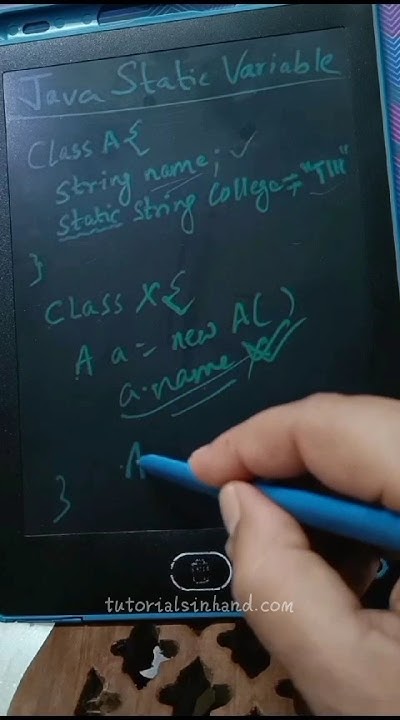 Java Static Variable
Class A{
String name;
static String College = "TIH"
}
Class X{
A a = new A()
a.name
A
}
tutorialsinhand.com